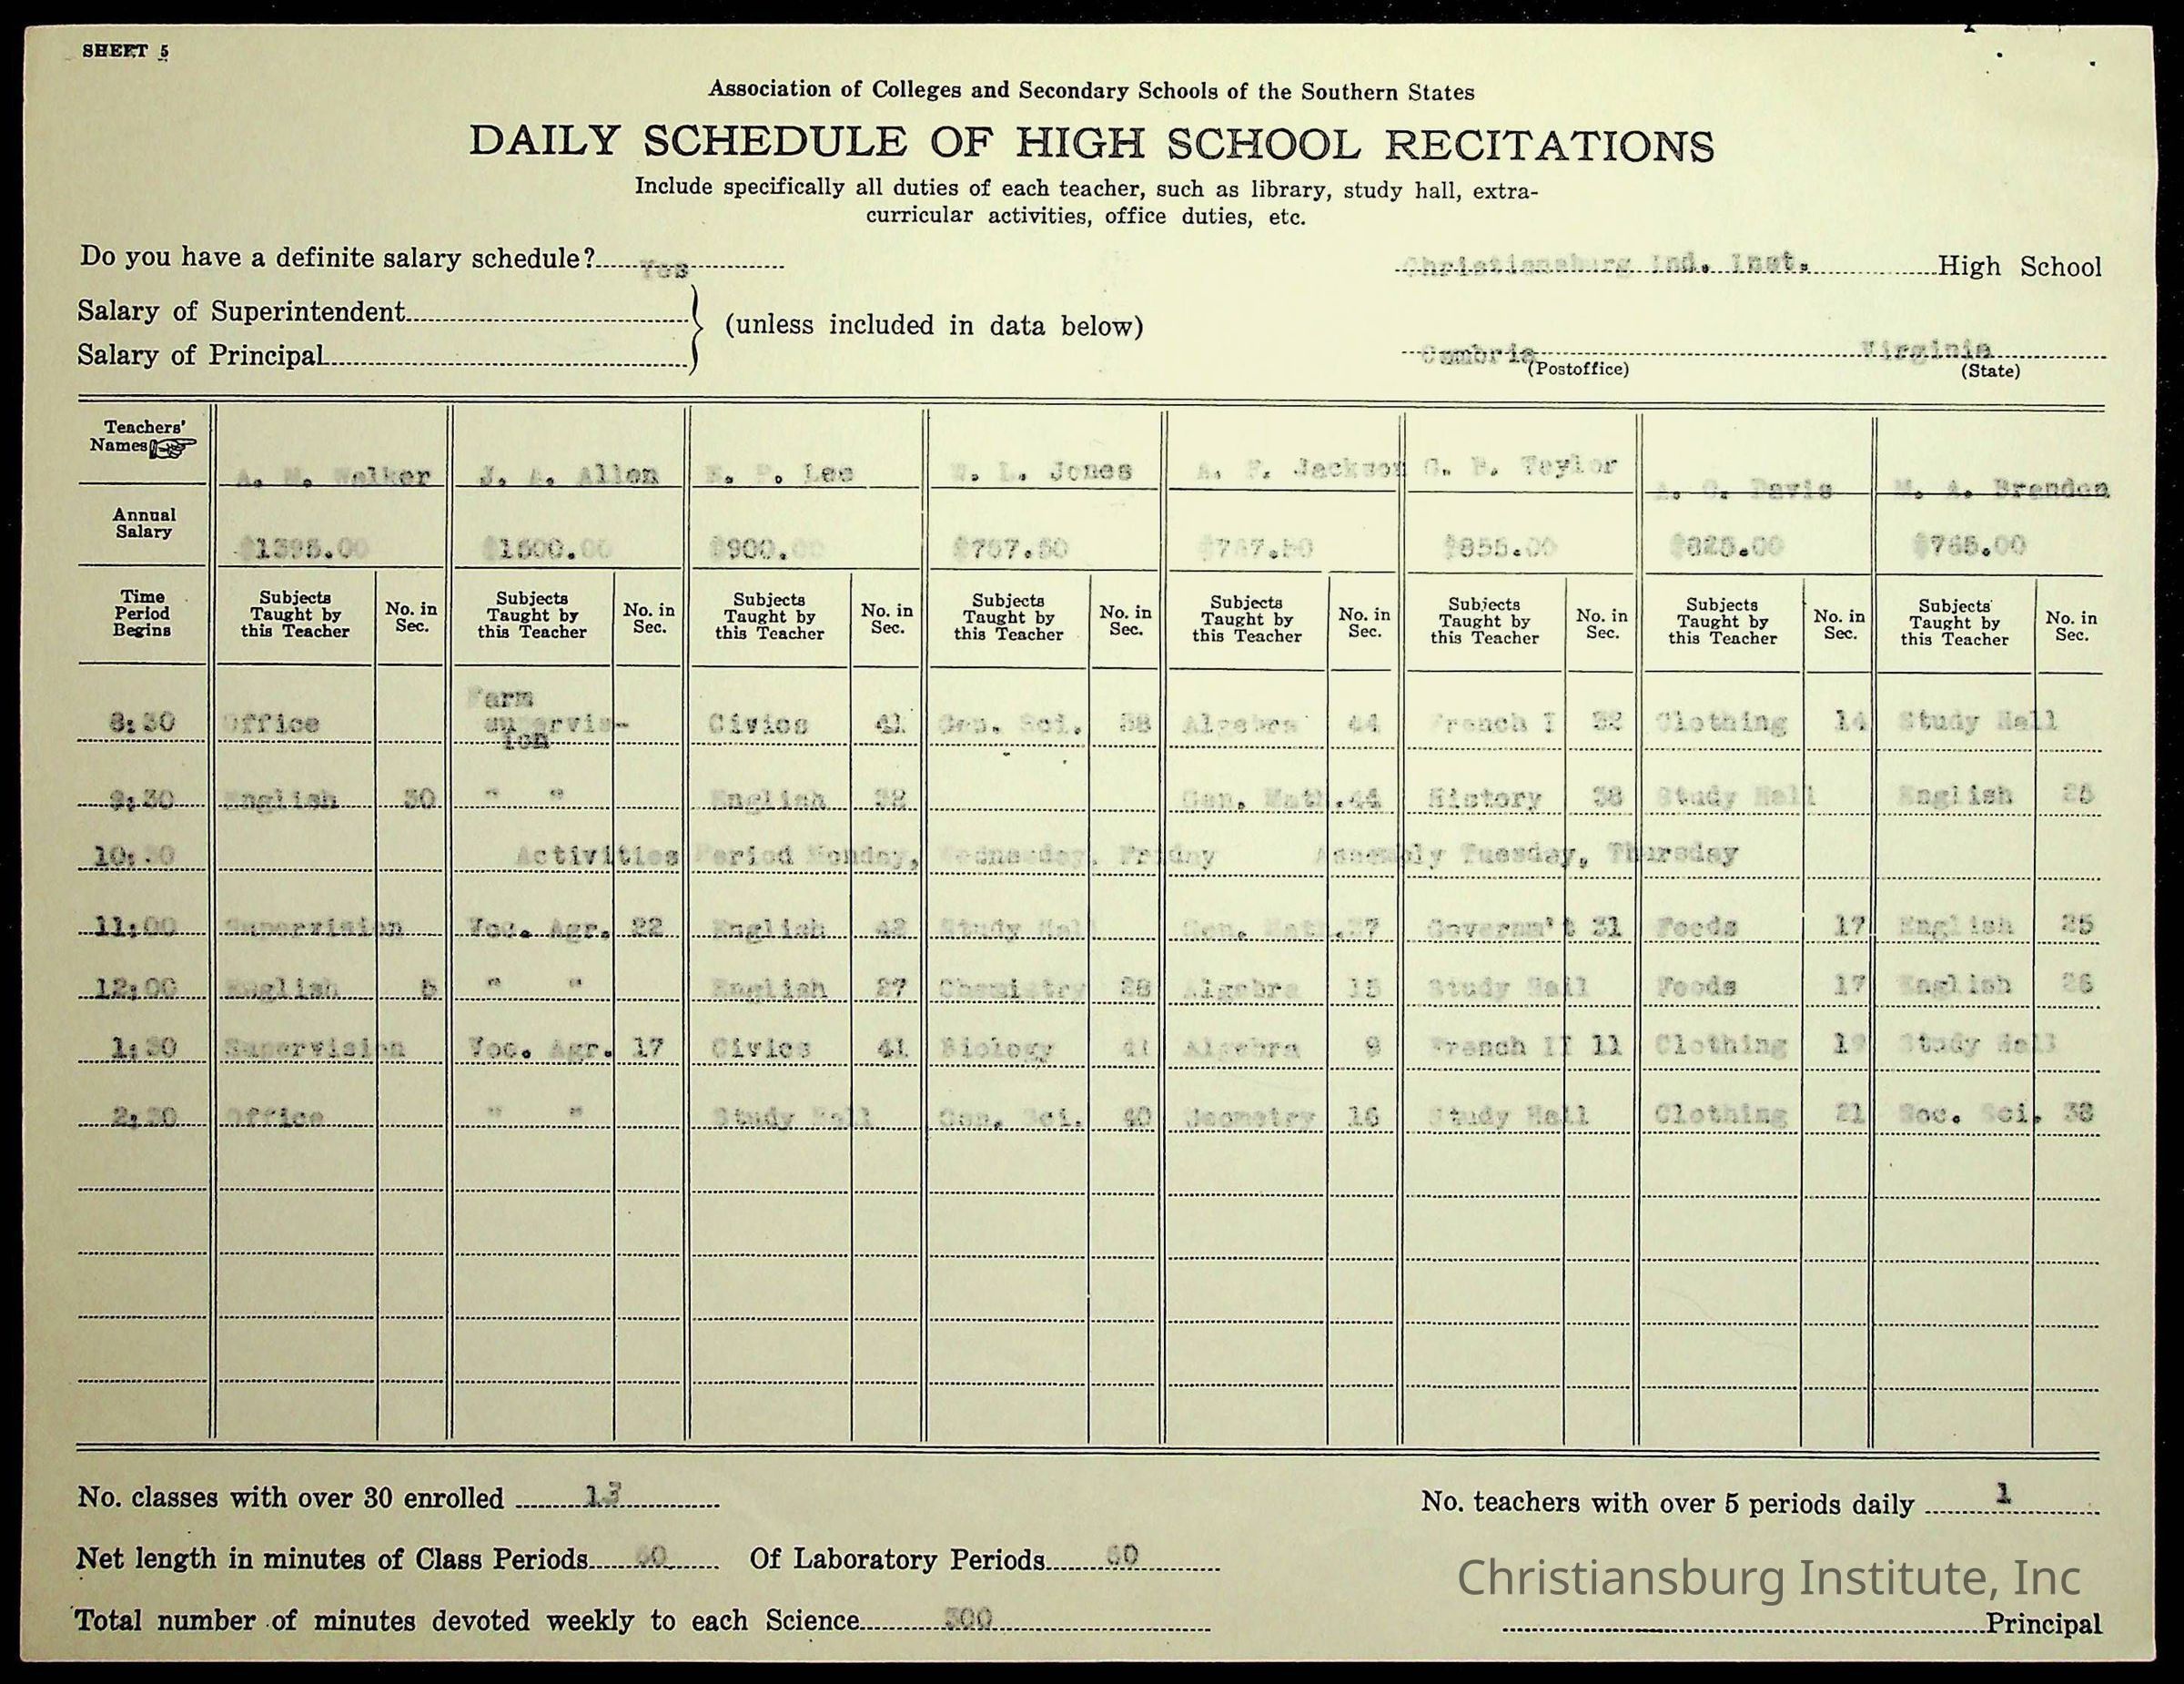 SHEET 5
Association of Colleges and Secondary Schools of the Southern States
DAILY SCHEDULE OF HIGH SCHOOL RECITATIONS
Include specifically all duties of each teacher, such as library, study hall, extra-
curricular activities, office duties, etc.
Do you have a definite salary schedule? Yes Christiansburg Ind. Inst. High School
Salary of Superintendent
(unless included in data below)
Salary of Principal
Cambria Virginia
(Postoffice) (State)
Teachers' Names A. M. Walker J. A. Allen E. P. Lee W. L. Jones A. F. Jackson G. P. Taylor A. G. Davis M. A. Brendon
Annual Salary $1395.00 $1600.00 $900.00 $767.50 $767.50 $855.00 $825.00 $765.00
Time Period Begins Subjects Taught by this Teacher No. in Sec. Subjects Taught by this Teacher No. in Sec. Subjects Taught by this Teacher No. in Sec. Subjects Taught by this Teacher No. in Sec. Subjects Taught by this Teacher No. in Sec. Subjects Taught by this Teacher No. in Sec. Subjects Taught by this Teacher No. in Sec. Subjects Taught by this Teacher No. in Sec.
8:30 Office Farm supervision Civics 41 Gen. Sci. 38 Algebra 44 French I 32 Clothing 14 Study Hall
9:30 English 30 " " English 32 Gen. Math. 44 History 38 Study Hall English 26
10:30 Activities Period Monday, Wednesday, Friday Assembly Tuesday, Thursday
11:00 Supervision Voc. Agr. 22 English 42 Study Hall Gen. Math. 37 Governm't 31 Foods 17 English 25
12:00 English 5 " " English 27 Chemistry 28 Algebra 15 Study Hall Foods 17 English 26
1:30 Supervision Voc. Agr. 17 Civics 41 Biology 41 Algebra 9 French II 11 Clothing 19 Study Hall
2:30 Office " " Study Hall Gen. Sci. 40 Geometry 16 Study Hall Clothing 21 Soc. Sci. 38
No. classes with over 30 enrolled 13 No. teachers with over 5 periods daily 1
Net length in minutes of Class Periods 60 Of Laboratory Periods 60
Christiansburg Institute, Inc
Total number of minutes devoted weekly to each Science 300 Principal